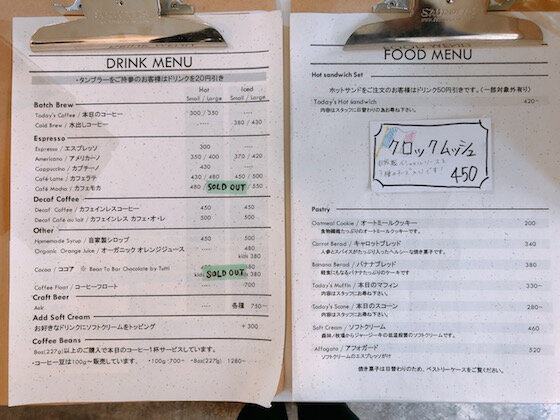 DRINK MENU
・タンブラーをご持参のお客様はドリンクを20円引き
Hot Iced
Small / Large Small / Large
Batch Brew
Today's Coffee / 本日のコーヒー 300 / 350 ----
Cold Brew / 水出しコーヒー ---- 380 / 430
Espresso
Espresso / エスプレッソ 300 ----
Americano / アメリカーノ 350 / 400 370 / 420
Cappuccino / カプチーノ 430 ----
Café Latte / カフェラテ 430 / 480 450 / 500
Café Mocha / カフェモカ 480 SOLD OUT / 550
Decaf Coffee
Decaf Coffee / カフェインレスコーヒー 450 500
Decaf Café au lait / カフェインレス カフェ・オ・レ 500 500
Other
Homemade Syrup / 自家製シロップ 450 500
Organic Orange Juice / オーガニック オレンジジュース ---- 480
kids 380
Cocoa / ココア ※ Bean To Bar Chocolate by Tutti SOLD OUT
Coffee Float / コーヒーフロート ---- 700
Craft Beer
各種 750〜
Add Soft Cream
お好きなドリンクにソフトクリームをトッピング + 300
Coffee Beans
8oz(227g)以上のご購入で本日のコーヒー1杯サービスしています。
・コーヒー豆は100g〜販売しています。 ・100g 700〜 ・8oz(227g) 1280〜
FOOD MENU
Hot sandwich Set
ホットサンドをご注文のお客様はドリンク50円引きです。(一部対象外有り)
Today's Hot sandwich 420〜
内容はスタッフに日替わりの為お尋ね下さい。
クロックムッシュ
450
Pastry
Oatmeal Cookie / オートミールクッキー 200
食物繊維たっぷりのオートミールクッキーです。
Carrot Beread / キャロットブレッド 340
人参とスパイスが入ったヘルシーな焼き菓子です。
Banana Beread / バナナブレッド 380
軽食にもなるバナナたっぷりのケーキです
Today's Muffin / 本日のマフィン 330〜
内容はスタッフにお尋ね下さい。
Today's Scone / 本日のスコーン 280〜
内容はスタッフにお尋ね下さい。
Soft Cream / ソフトクリーム 460
Affogato / アフォガード 520
ソフトクリームのエスプレッソがけ
焼き菓子は日替わりのため、ペストリーケースをご覧ください。